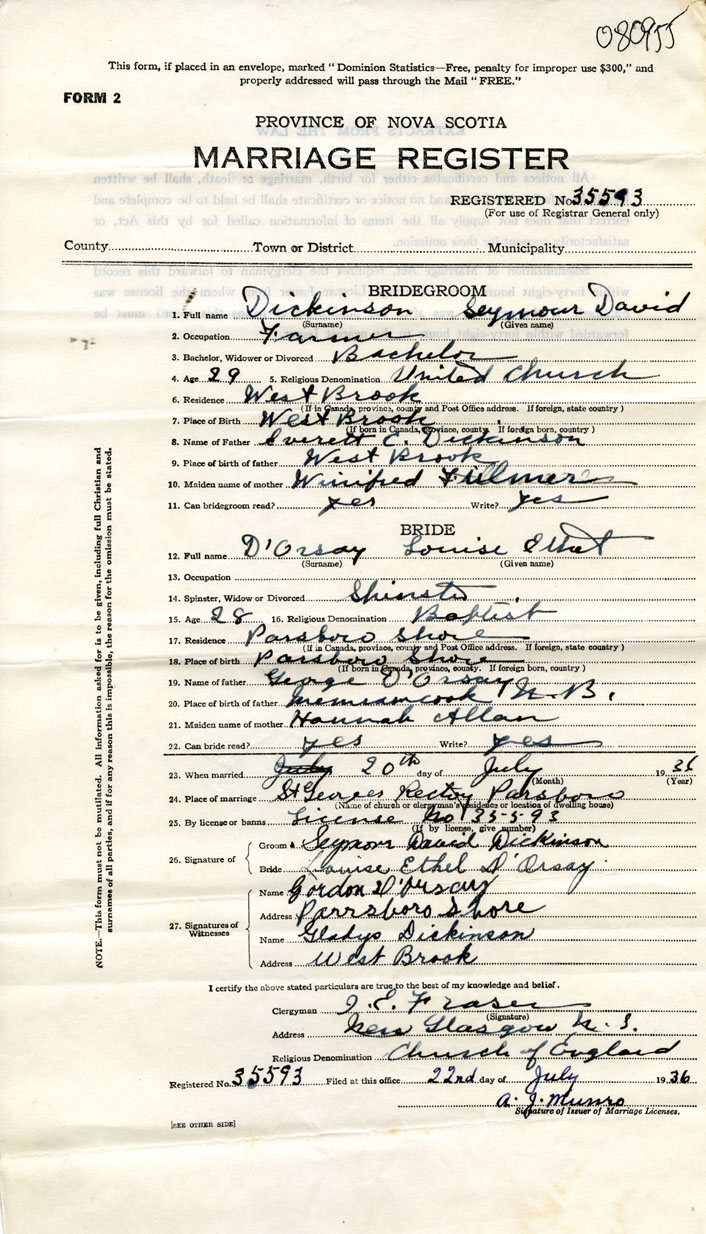 080955
This form, if placed in an envelope, marked "Dominion Statistics—Free, penalty for improper use $300," and
properly addressed will pass through the Mail "FREE."
FORM 2
PROVINCE OF NOVA SCOTIA
MARRIAGE REGISTER
REGISTERED No. 35593
(For use of Registrar General only)
County Town or District Municipality
BRIDEGROOM
1. Full name Dickinson Seymour David
(Surname) (Given name)
2. Occupation Farmer
3. Bachelor, Widower or Divorced Bachelor
4. Age 29 5. Religious Denomination United Church
6. Residence West Brook
(If in Canada, province, county and Post Office address. If foreign, state country)
7. Place of Birth West Brook
(If born in Canada, province, county. If foreign born, country)
8. Name of Father Everett E. Dickinson
9. Place of birth of father West Brook
10. Maiden name of mother Winifred Fullmer
11. Can bridegroom read? yes Write? yes
BRIDE
12. Full name D'Orsay Louise Ethel
(Surname) (Given name)
13. Occupation
14. Spinster, Widow or Divorced Spinster
15. Age 28 16. Religious Denomination Baptist
17. Residence Parsboro Shore
(If in Canada, province, county and Post Office address. If foreign, state country)
18. Place of birth Parsboro Shore
(If born in Canada, province, county. If foreign born, country)
19. Name of father George D'Orsay
20. Place of birth of father Memramcook N.B.
21. Maiden name of mother Hannah Allan
22. Can bride read? yes Write? yes
23. When married July 20th day of July 1936
(Month) (Year)
24. Place of marriage St Georges Rectory Parsboro
(Name of church or clergyman's residence or location of dwelling house)
25. By license or banns License No 35593
(If by license, give number)
26. Signature of
Groom Seymour David Dickinson
Bride Louise Ethel D'Orsay
27. Signatures of Witnesses
Name Gordon D'Orsay
Address Parrsboro Shore
Name Gladys Dickinson
Address West Brook
NOTE.—This form must not be mutilated. All information asked for is to be given, including full Christian and
surnames of all parties, and if for any reason this is impossible, the reason for the omission must be stated.
I certify the above stated particulars are true to the best of my knowledge and belief.
Clergyman J. E. Fraser
(Signature)
Address New Glasgow N. S.
Religious Denomination Church of England
Registered No. 35593 Filed at this office 22nd day of July 1936
A. J. Munro
Signature of Issuer of Marriage Licenses.
[SEE OTHER SIDE]